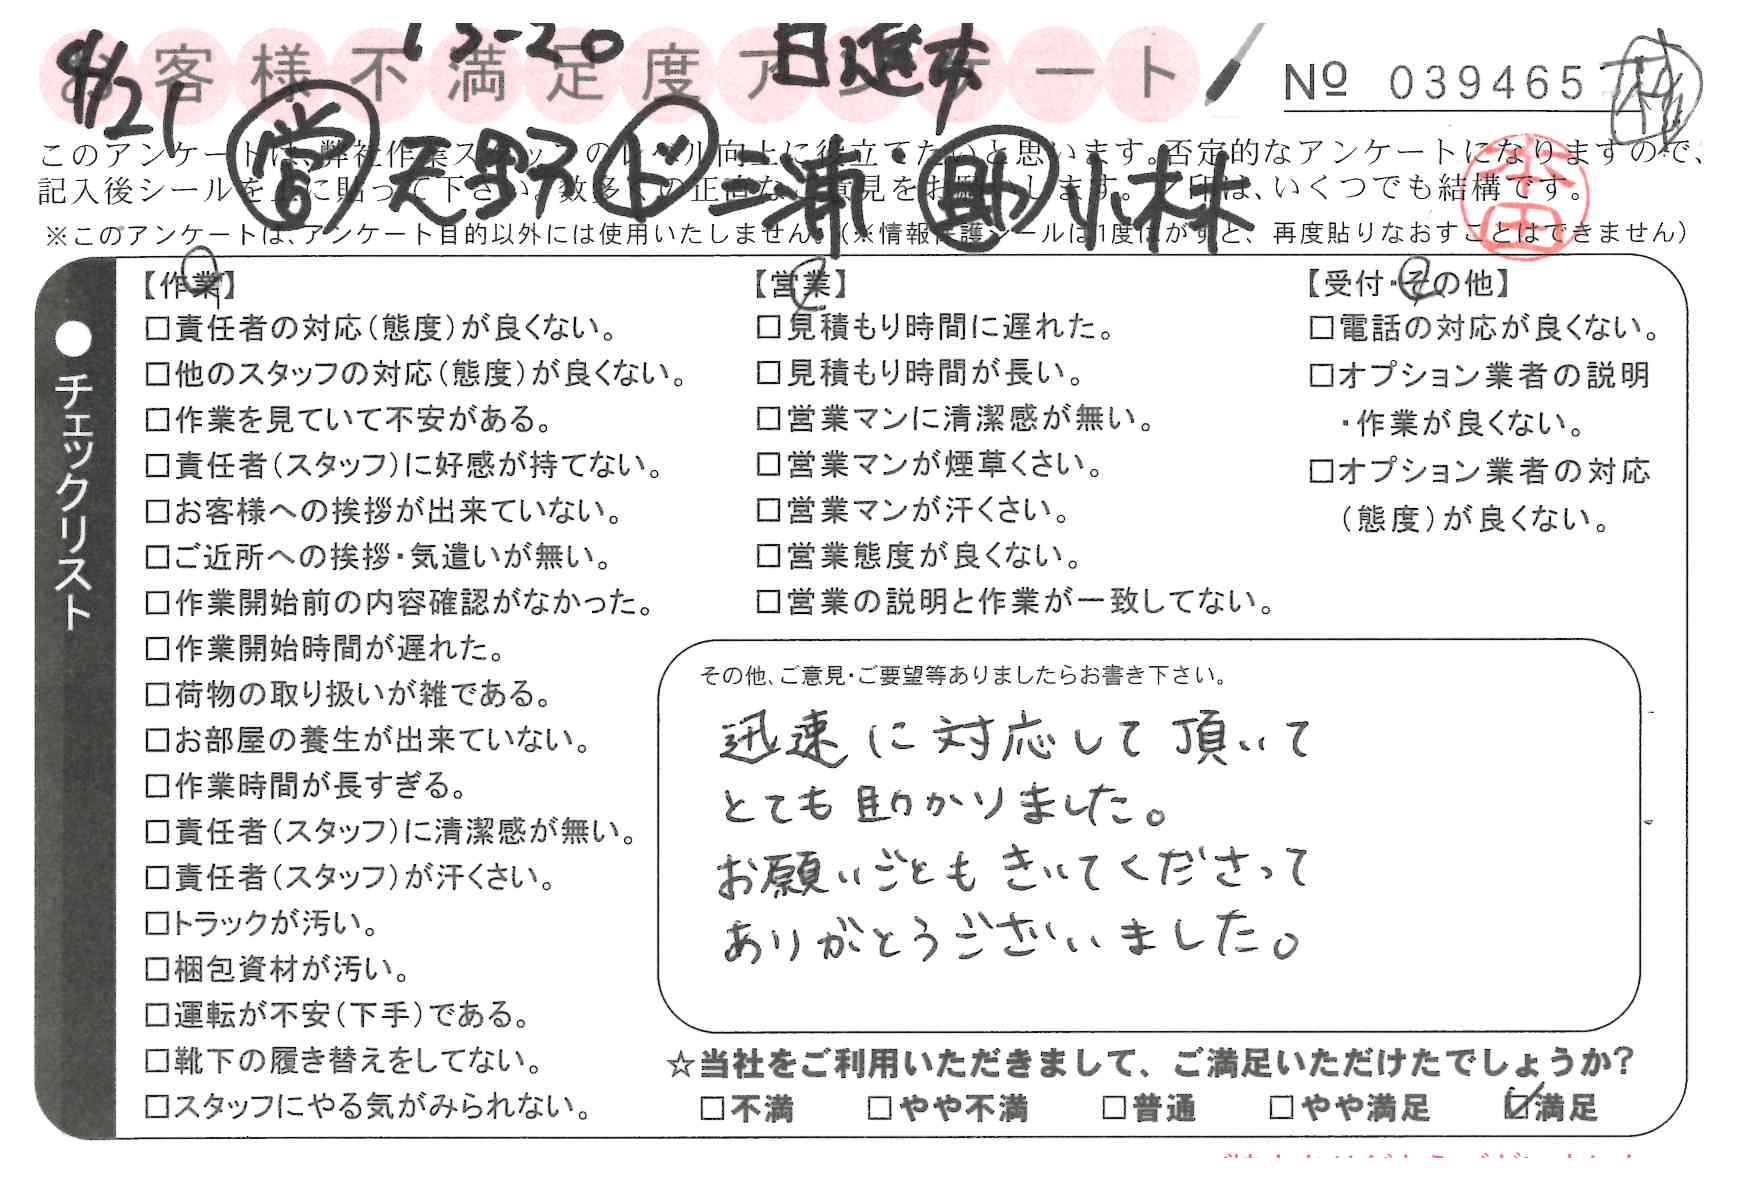 お客様不満足度アンケート
9/21 13-20 日進市
№ 039465
営 天野 ド 三浦 助 小林
このアンケートは、弊社作業スタッフのレベル向上に役立てたいと思います。否定的なアンケートになりますので、
記入後シールを上に貼って下さい。数多くの正直な、ご意見をお願いします。レ印は、いくつでも結構です。
※このアンケートは、アンケート目的以外には使用いたしません。(※情報保護シールは1度はがすと、再度貼りなおすことはできません)
本田
●チェックリスト
【作業】
□責任者の対応(態度)が良くない。
□他のスタッフの対応(態度)が良くない。
□作業を見ていて不安がある。
□責任者(スタッフ)に好感が持てない。
□お客様への挨拶が出来ていない。
□ご近所への挨拶・気遣いが無い。
□作業開始前の内容確認がなかった。
□作業開始時間が遅れた。
□荷物の取り扱いが雑である。
□お部屋の養生が出来ていない。
□作業時間が長すぎる。
□責任者(スタッフ)に清潔感が無い。
□責任者(スタッフ)が汗くさい。
□トラックが汚い。
□梱包資材が汚い。
□運転が不安(下手)である。
□靴下の履き替えをしてない。
□スタッフにやる気がみられない。
【営業】
□見積もり時間に遅れた。
□見積もり時間が長い。
□営業マンに清潔感が無い。
□営業マンが煙草くさい。
□営業マンが汗くさい。
□営業態度が良くない。
□営業の説明と作業が一致してない。
【受付・その他】
□電話の対応が良くない。
□オプション業者の説明
・作業が良くない。
□オプション業者の対応
(態度)が良くない。
その他、ご意見・ご要望等ありましたらお書き下さい。
迅速に対応して頂いて
とても助かりました。
お願いごともきいてくださって
ありがとうございました。
☆当社をご利用いただきまして、ご満足いただけたでしょうか?
□不満 □やや不満 □普通 □やや満足 ☑満足